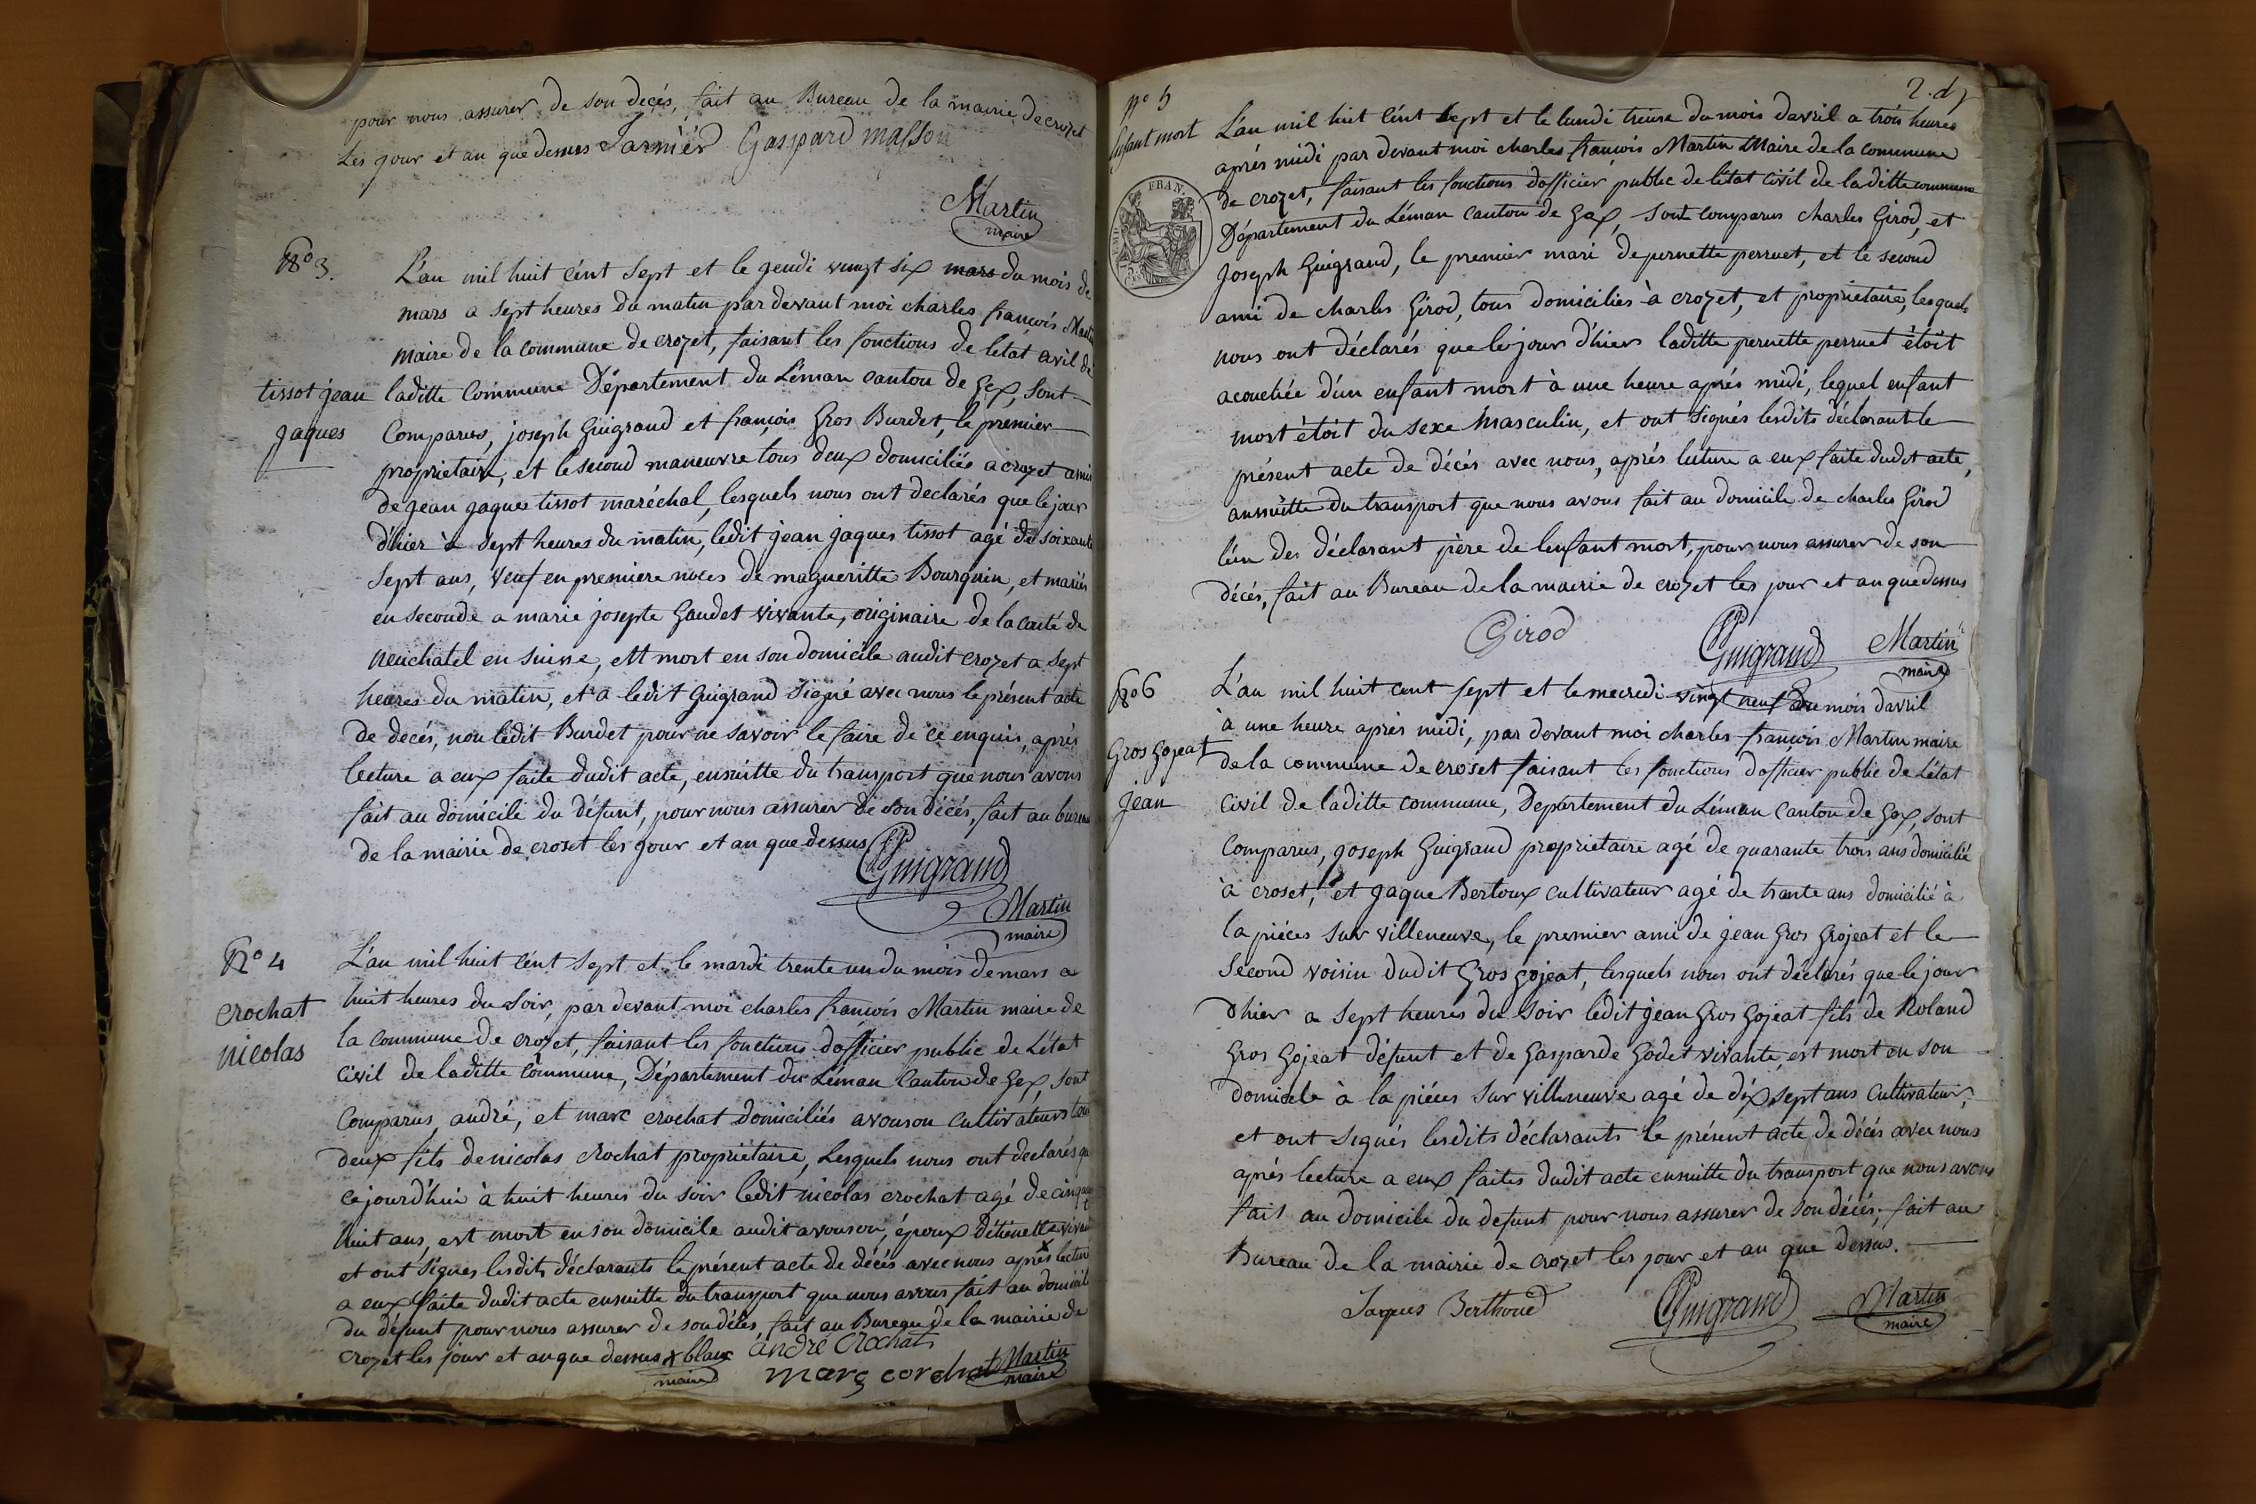 pour nous assurer de son decés, fait au Bureau de la mairie de crozet
Les jour et an que dessus Tarnier Gaspard masson
Martin
maire
No 3.
L'an mil huit cént sept et le geudi vingt six mars du mois de
mars a sept heures du matin par devant moi charles françois Martin
maire de la commune de crozet, faisant les fonctions de letat civil de
tissot jean
jaques
laditte Commune Département du Léman canton de Gex, sont
Comparus, joseph Guigrand et françois Gros Burdet, le premier
proprietaire, et le second maneuvre tous deux domiciliés a crozet amis
de jean jaques tissot maréchal, lesquels nous ont declarés que le jour
d'hier à sept heures du matin, ledit jean jaques tissot agé de soixante
sept ans, veuf en premiere noces de magueritte Bourquin, et mariés
en seconde a marie josepte Gaudet vivante, originaire de la conté de
neuchatel en suisse, est mort en son domicile audit crozet a sept
heures du matin, et a ledit Guigrand signé avec nous le présent acte
de decés, non ledit Burdet pour ne savoir le faire de ce enquis, aprés
lecture a eux faite dudit acte, ensuitte du transport que nous avons
fait au domicile du défunt, pour nous assurer de son décés, fait au bureau
de la mairie de croset les jour et an que dessus
Guigrand
Martin
maire
No 4
crochat
nicolas
L'an mil huit cént sept et le mardi trente un du mois de mars a
huit heures du soir, par devant moi charles françois Martin maire de
la commune de crozet, faisant les fonctions d'officier public de L'état
Civil de laditte Commune, Département du Léman Canton de Gex, sont
Comparus andré, et marc crochat domiciliés avouson cultivateurs tous
deux fils de nicolas crochat propriétaire, Lesquels nous ont declarés que
cejourd'hui à huit heures du soir ledit nicolas crochat agé de cinquante
huit ans, est mort en son domicile audit avouson, époux d'étienette vivante
et ont signés lesdits déclarants le présent acte de décés avec nous aprés lecture
a eux faite dudit acte ensuitte du transport que nous avons fait au domicile
du défunt pour nous assurer de son décés, fait au Bureau de la mairie de
crozet les jour et an que dessus x blanc
maire
andré Crochat
marc corchat
Martin
maire
2. d
No 5
Enfant mort
L'an mil huit cént sept et le lundi treize du mois davril a trois heures
aprés midi par devant moi charles françois Martin Maire de la commune
de crozet, faisant les fonctions dofficier public de létat civil de laditte commune
FRAN.
Département du Léman canton de Gex, sont comparus charles Girod, et
joseph Guigrand, le premier mari de pernette perruet, et le second
ami de charles Girod, tous domiciliés à crozet, et propriétaire, lesquels
nous ont déclarés que le jour d'hier laditte pernette perruet étoit
acouchée d'un enfant mort à une heure aprés midi, lequel enfant
mort étoit du sexe masculin, et ont signés lesdits déclarant le
présent acte de décés avec nous, aprés luture a eux faite dudit acte,
ansuitte du transport que nous avons fait au domicile de charles Girod
l'un des déclarant père de lenfant mort, pour nous assurer de son
décés, fait au Bureau de la mairie de crozet les jour et an que dessus
Girod
Guigrand
Martin
maire
No 6
Gros Gojeat
jean
L'an mil huit cent sept et le mecredi vingt neuf du mois davril
à une heure aprés midi, par devant moi charles françois Martin maire
de la commune de croset faisant les fonctions dofficier public de L'état
Civil de laditte commune, Département du Léman Canton de Gex, sont
Comparus, joseph Guigrand proprietaire agé de quarante trois ans domicilié
à croset, et jaque Bertoux cultivateur agé de trante ans domicilié à
la piéces sur villeneuve, le premier ami de jean Gros Grojeat et le
second voisin dudit Gros gojeat, lesquels nous ont déclarés que le jour
d'hier a sept heures du soir ledit jean Gros Gojeat fils de Roland
Gros Gojeat défunt et de Gasparde Godet vivante, est mort en son
domicile à la piéces sur villeneuve agé de dix sept ans cultivateur,
et ont signés lesdits déclarants le présent acte de décés avec nous
aprés lecture a eux faites dudit acte ensuitte du transport que nous avons
fait au domicile du defunt pour nous assurer de son décés, fait au
Bureau de la mairie de crozet les jour et an que dessus.
Jaques Berthoud
Guigrand
Martin
maire